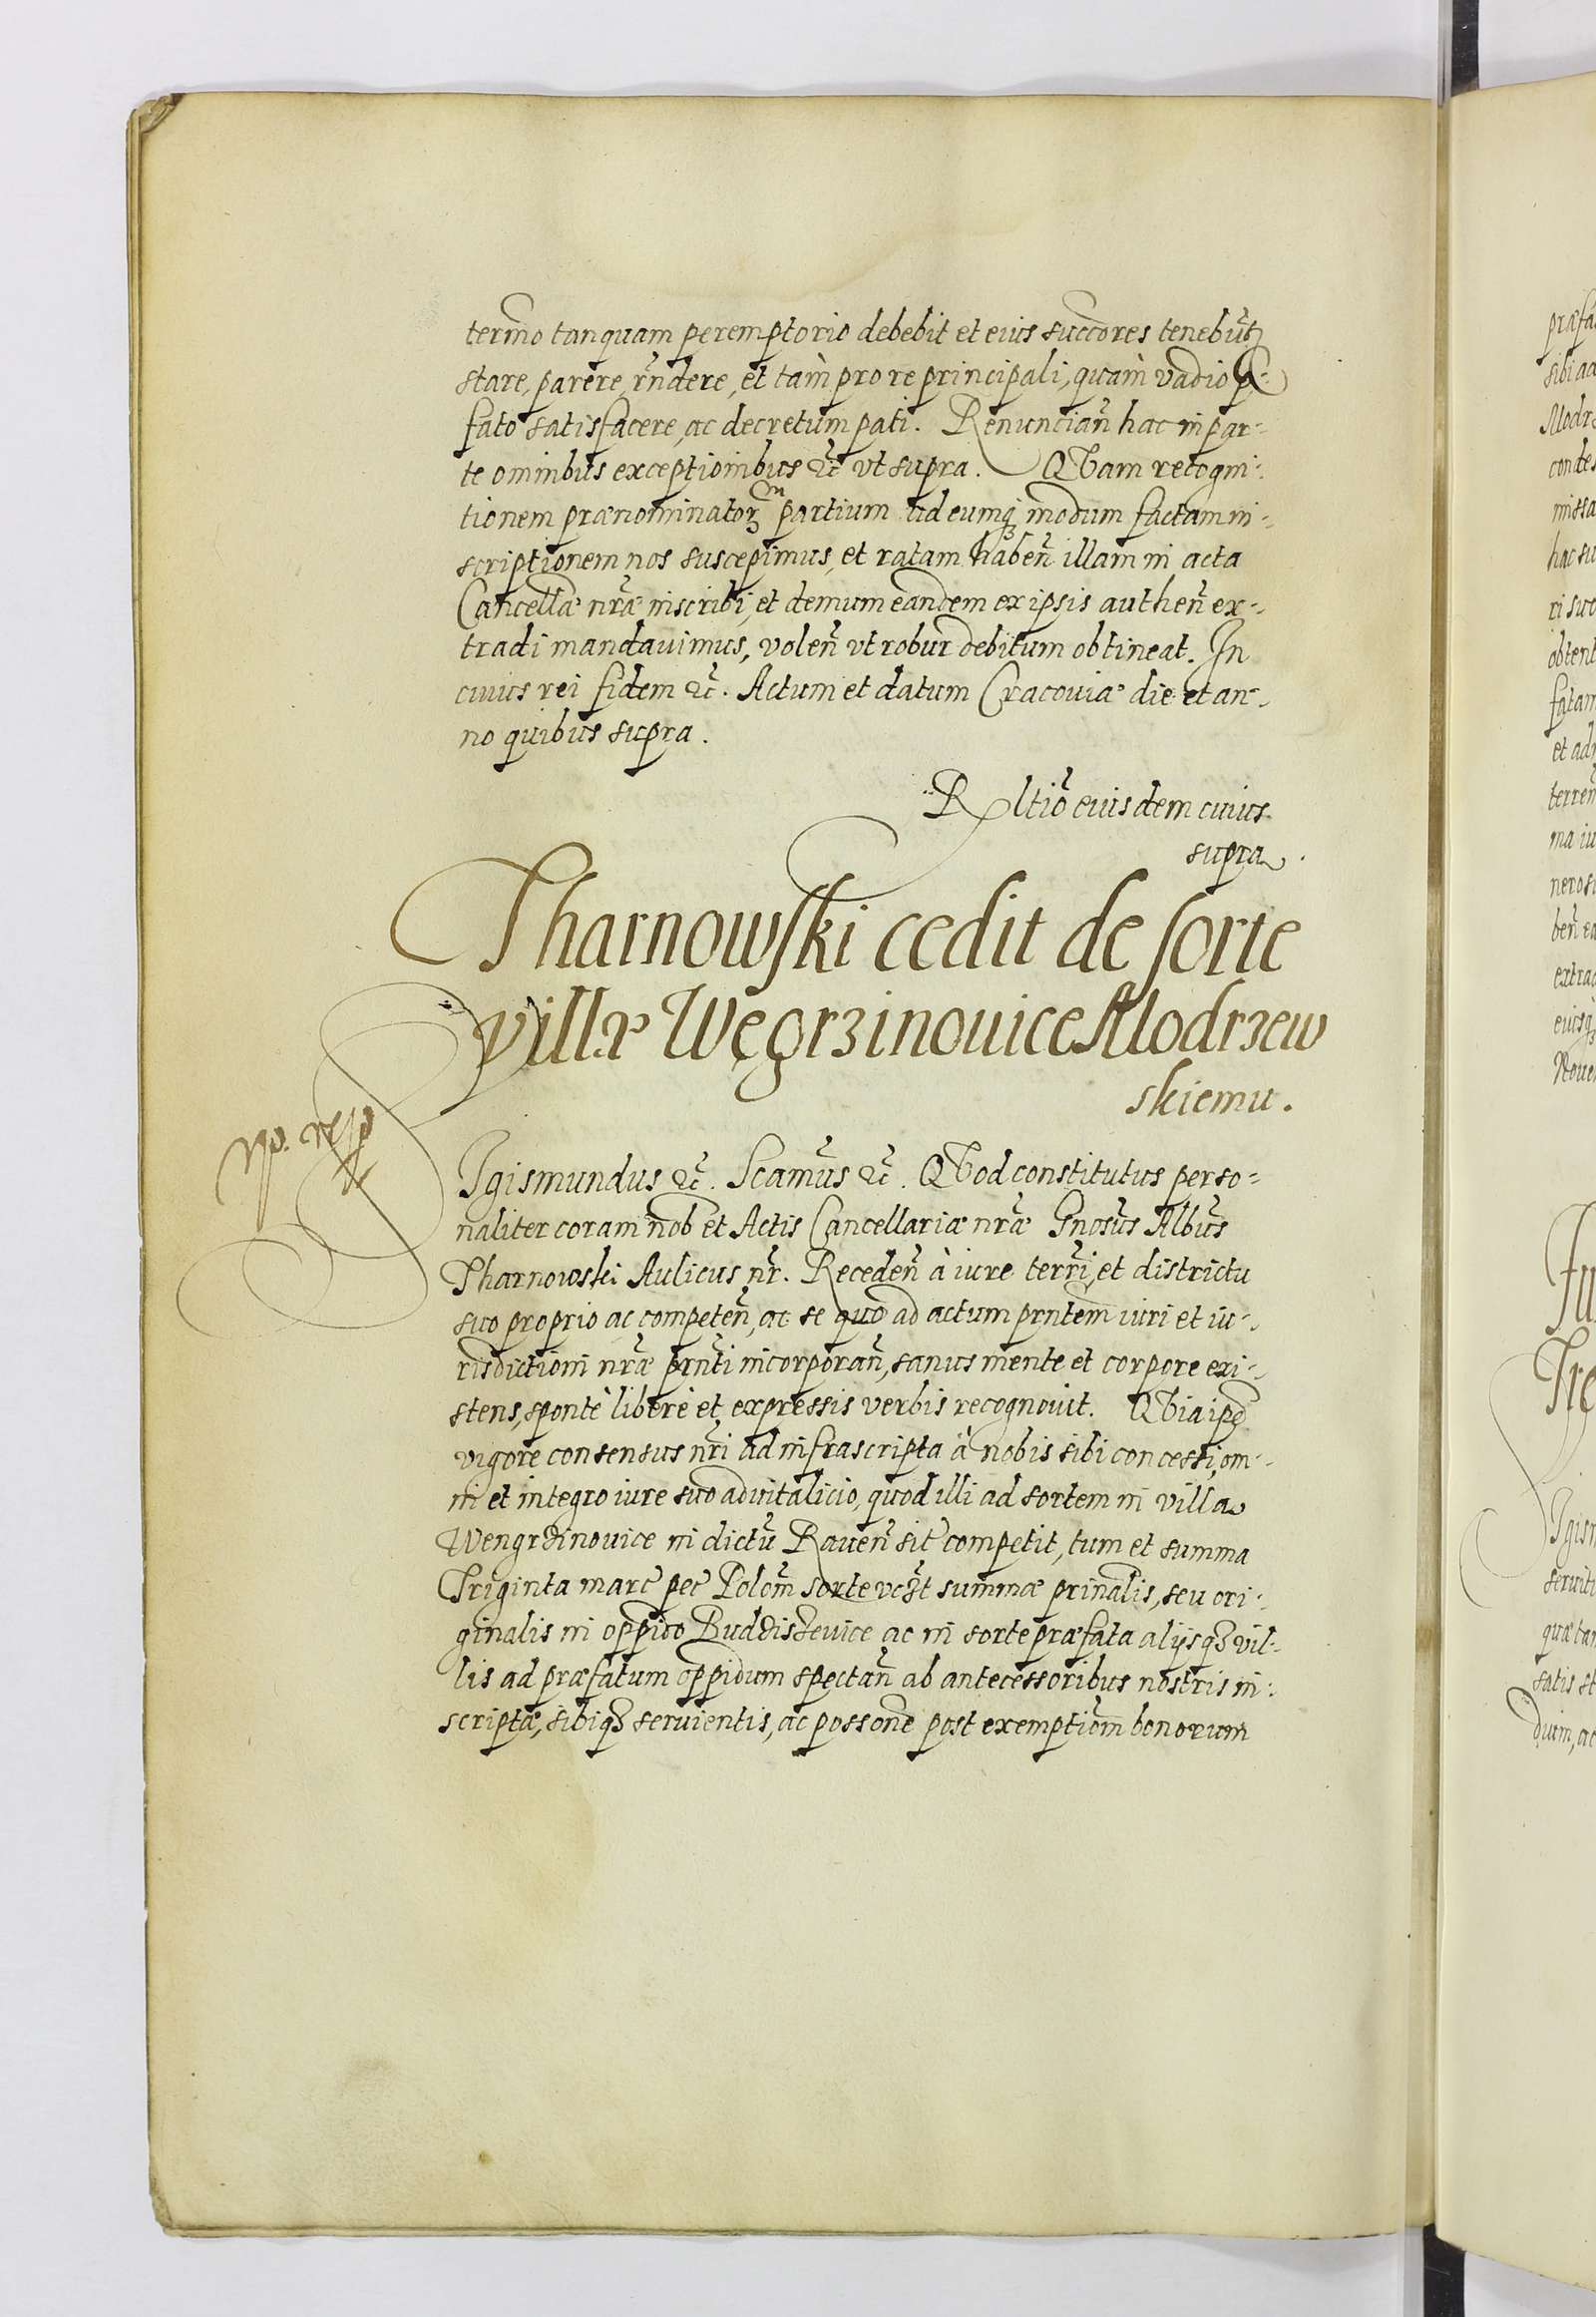 termo tanquam peremptorio debebit et eius succores tenebut
stare, parere, rndere, et tam pro re principali, quàm vadio p-
fato satisfacere, ac decretum pati. Renuncian hac in par-
te ominibus exceptioinibus &c vt supra. QVam recogni-
tionem prænominator partium ad eumq modum factam in-
scriptionem nos suscepimus, et ratam haben illam in acta
Cancellæ nræ inscribi, et demum eandem ex ipsis authen ex-
tradi mandauimus, volen vt robur debitum obtineat. In
cuius rei fidem &c. Actum et datum Cracouiæ die et an-
no quibus supra.
Rltio eiusdem cuius
supra.
Tharnowski cedit de sorte
villæ Węgrzinouice Modrzew
skiemu.
Igismundus &c. Scamus &c. QVod constitutus perso-
naliter coram nob et Actis Cancellariæ nræ Gnosus Albus
Tharnowski Aulicus nr. Receden à iure terri, et districtu
suo proprio ac competen, ac se quo ad actum prntem iuri et iu-
risdictioni nræ prnti incorporan, sanus mente et corpore exi-
stens, sponte libere et expressis verbis recognouit. QVia ipe
vigore consensus nri ad infrascripta à nobis sibi concessi, om-
ni et integro iure suo aduitalicio, quod illi ad sortem in villa
Wengrzinouice in dictu Rauen sit competit, tum et summa
Triginta marc pec Polom sorte vczt summæ prinalis, seu ori-
ginalis in oppido Budziszeuice ac in sorte præfata alijsqz vil-
lis ad præfatum oppidum spectan ab antecessoribus nostris in-
scriptæ, sibiqz seruientis, ac possone post exemptiom bonorum